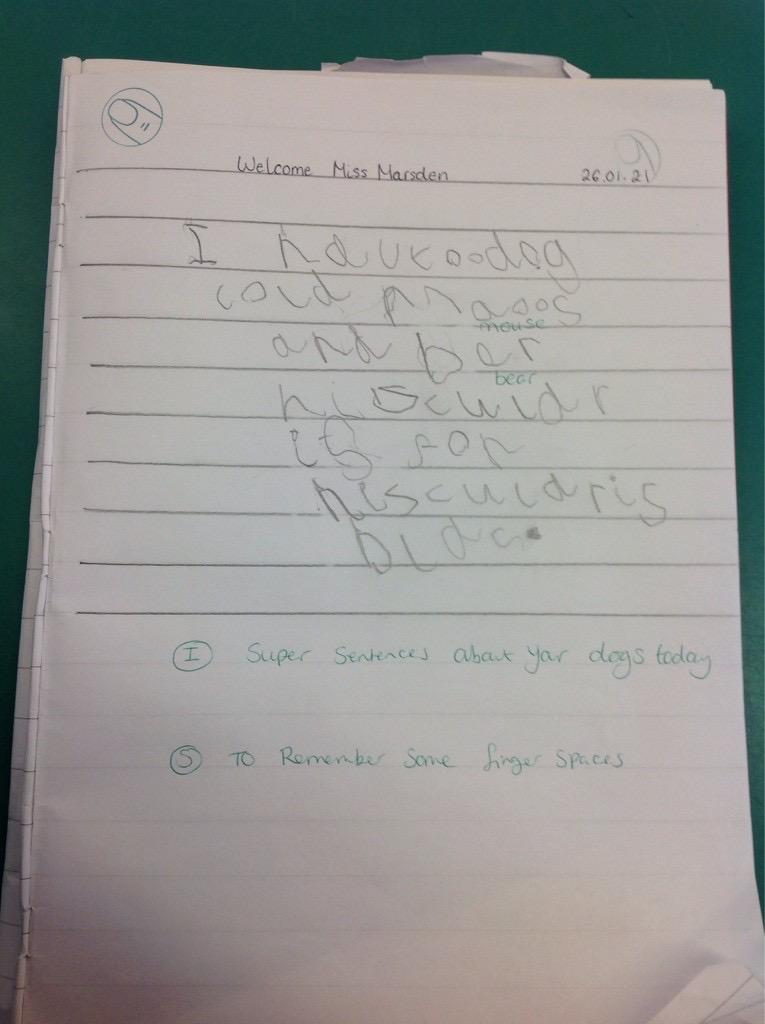 Welcome Miss Marsden 26.01.21
I havecoodog
cold maoos
mouse
and bar
bear
hiscular
is for
hiscularis
blac.
I Super Sentences about your dogs today
S To Remember Some finger Spaces